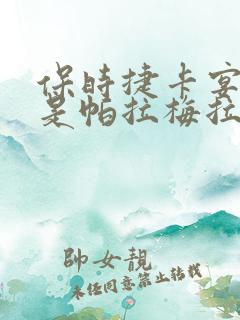 保时捷卡宴
是帕拉梅拉
帥女靚
未经同意禁止转载